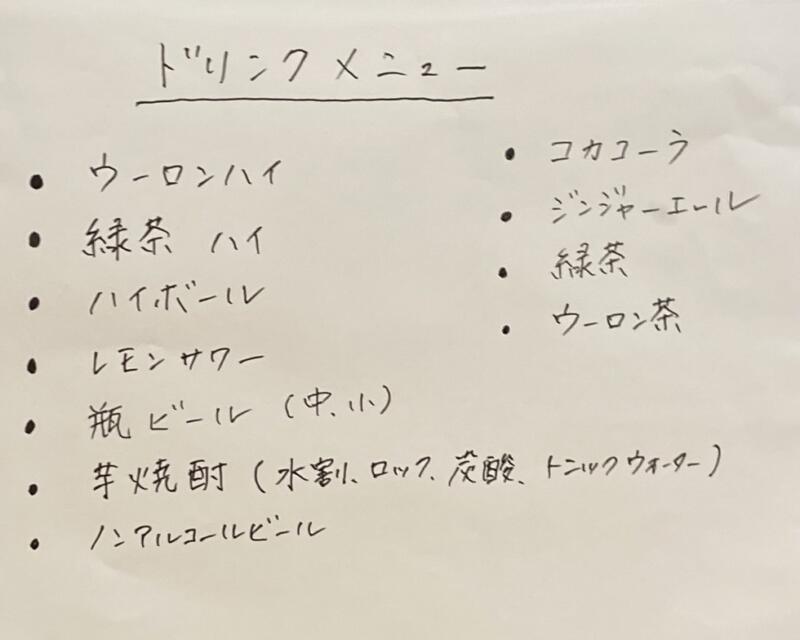 ドリンクメニュー
・ウーロンハイ
・緑茶 ハイ
・ハイボール
・レモンサワー
・瓶ビール(中、小)
・芋焼酎(水割、ロック、炭酸、トニックウォーター)
・ノンアルコールビール
・コカコーラ
・ジンジャーエール
・緑茶
・ウーロン茶